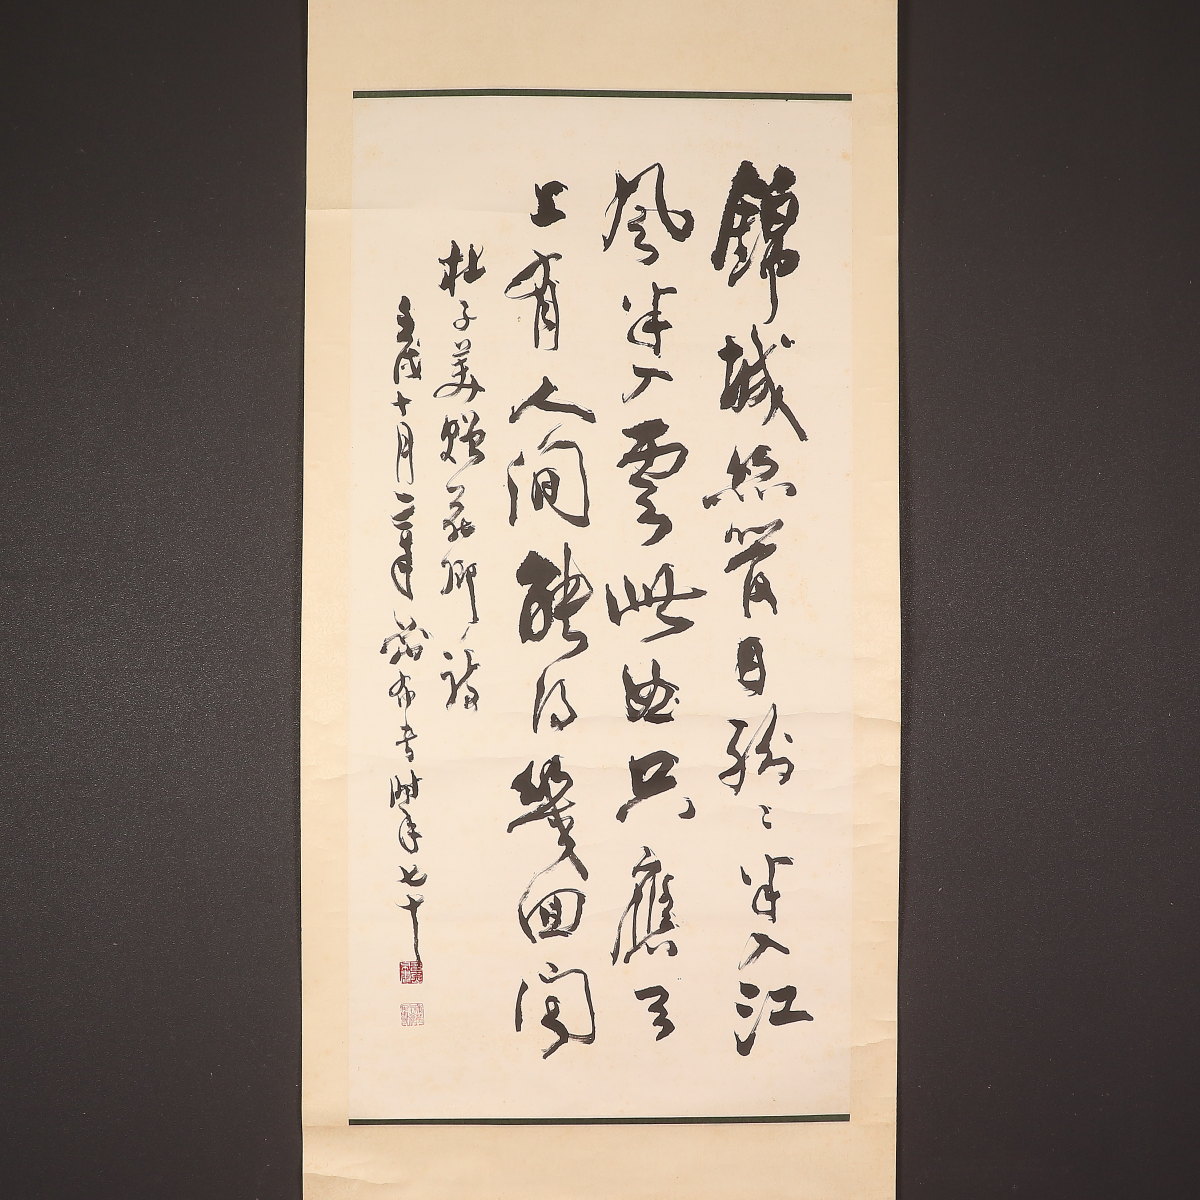 錦城絲管日紛〻半入江
風半入雲此曲只應天
上有人間能得幾回聞
杜子美贈花卿詩
壬戌十月二章 布書時年七十